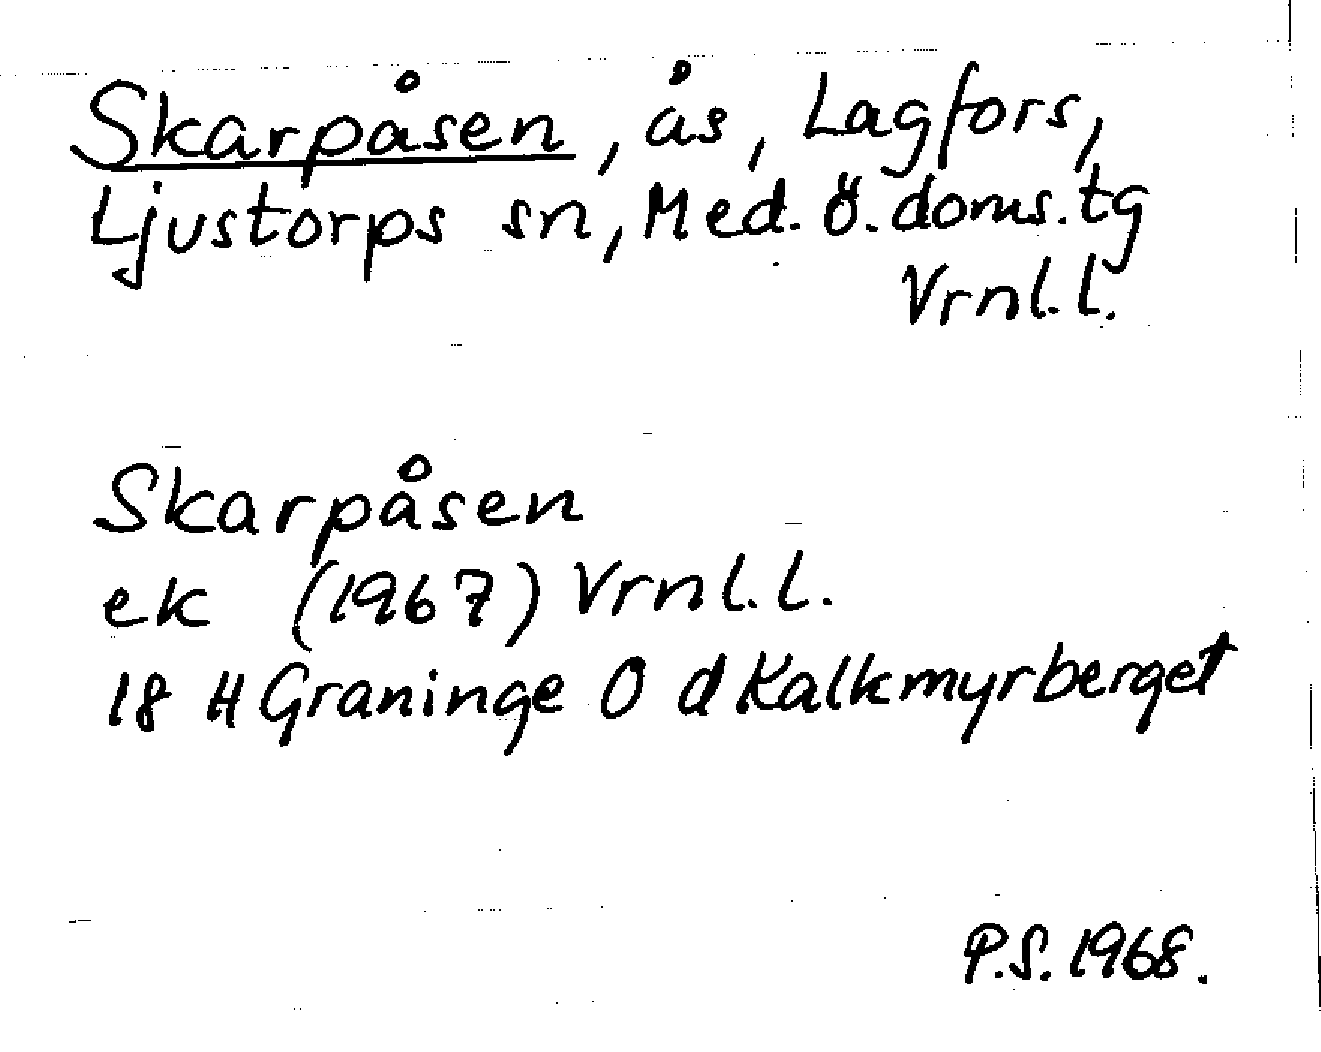 Skarpåsen, ås, Lagfors,
Ljustorps sn, Med. ö. doms. tg
Vrnl. l.
Skarpåsen
ek (1967) Vrnl. l.
18 H Graninge O d Kalkmyrberget
P.S. 1968.